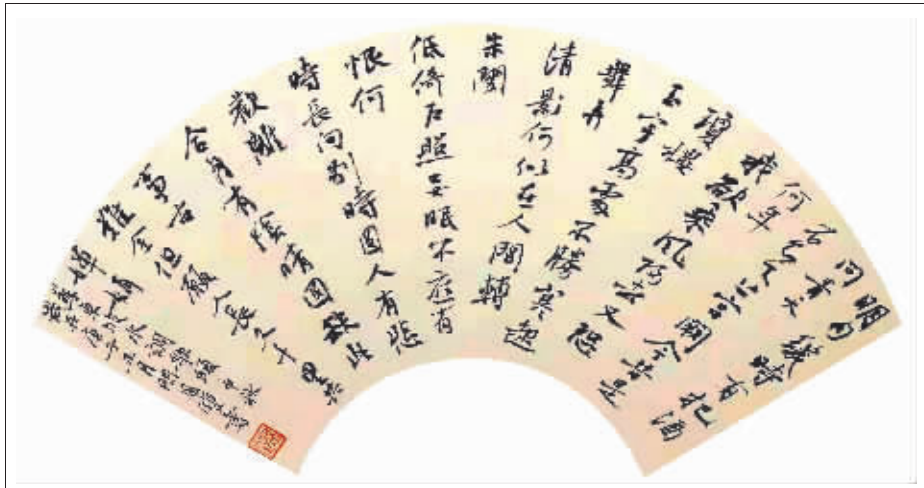 明月幾時有把酒
問青天
不知天上宮闕今昔是
何年
我欲乘風歸去又恐
瓊樓
玉宇高處不勝寒起
舞弄
清影何似在人間轉
朱閣
低綺戶照無眠不應有
恨何
時長向別時圓人有悲
歡離
合月有陰晴圓缺此
事古
難全但願人長久千里共
嬋娟
蘇東坡水調歌頭中秋